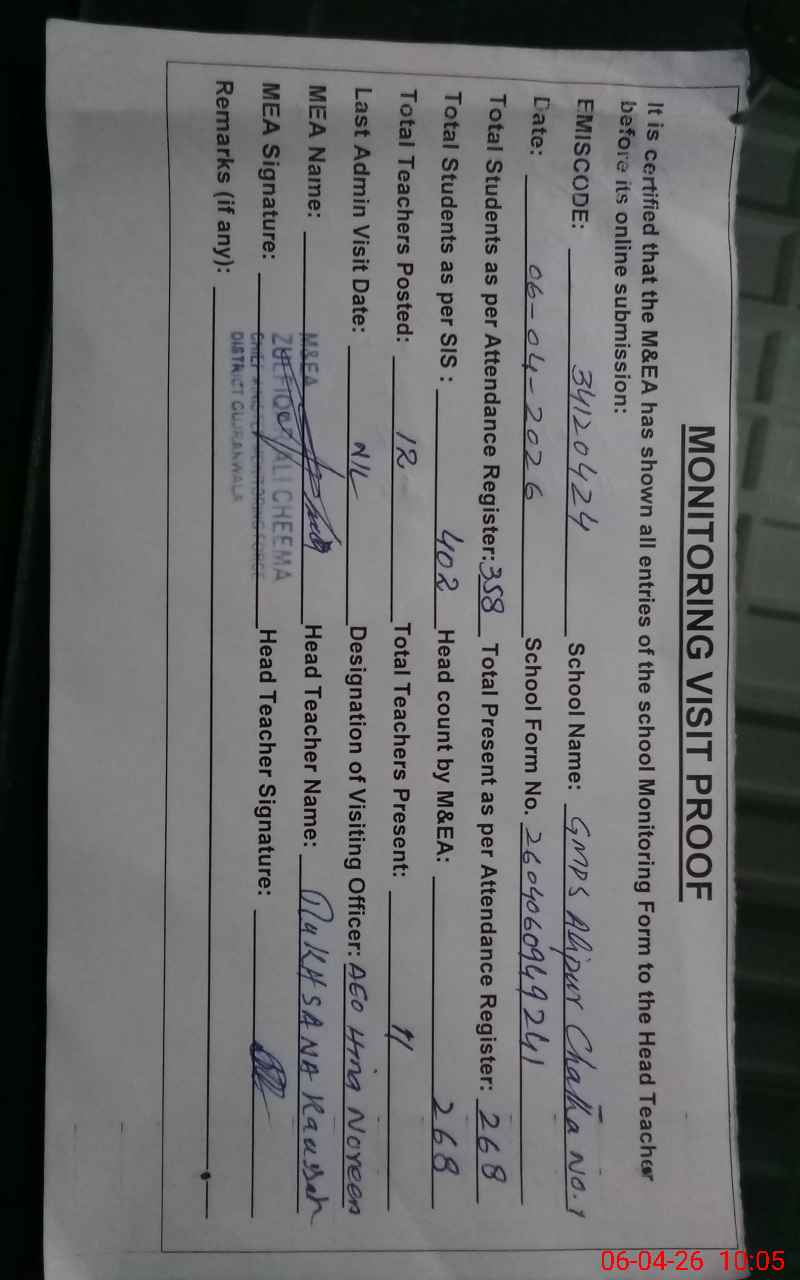 MONITORING VISIT PROOF
It is certified that the M&EA has shown all entries of the school Monitoring Form to the Head Teacher
before its online submission:
EMISCODE: 34120424 School Name: GMPS Alipur Chatha No. 1
Date: 06-04-2026 School Form No. 2604060949241
Total Students as per Attendance Register: 358 Total Present as per Attendance Register: 268
Total Students as per SIS : 402 Head count by M&EA: 268
Total Teachers Posted: 12 Total Teachers Present: 11
Last Admin Visit Date: NIL Designation of Visiting Officer: AEO Hina Noreen
MEA Name: Head Teacher Name: RUKHSANA Kausar
MEA Signature: Head Teacher Signature:
M&EA
ZULFIQAR ALI CHEEMA
DISTRICT GUJRANWALA
Remarks (if any):
06-04-26 10:05